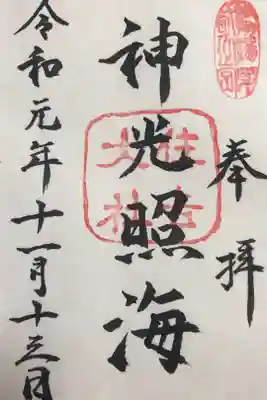 奉拝
神光照海
令和元年十一月十三日